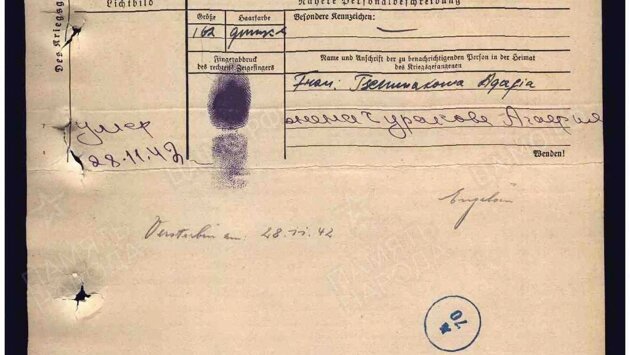 Lichtbild
Nähere Personalbeschreibung
Des Kriegsg
Größe
Haarfarbe
Besondere Kennzeichen:
162
Fingerabdruck
des rechten Zeigefingers
Name und Anschrift der zu benachrichtigenden Person in der Heimat
des Kriegsgefangenen
Frau: Tschurakowa Agafia
умер
28.11.42
жена Чуракове Агафия
Wenden!
Verstorben am: 28.11.42
70
ПАМЯТЬ
НАРОДА